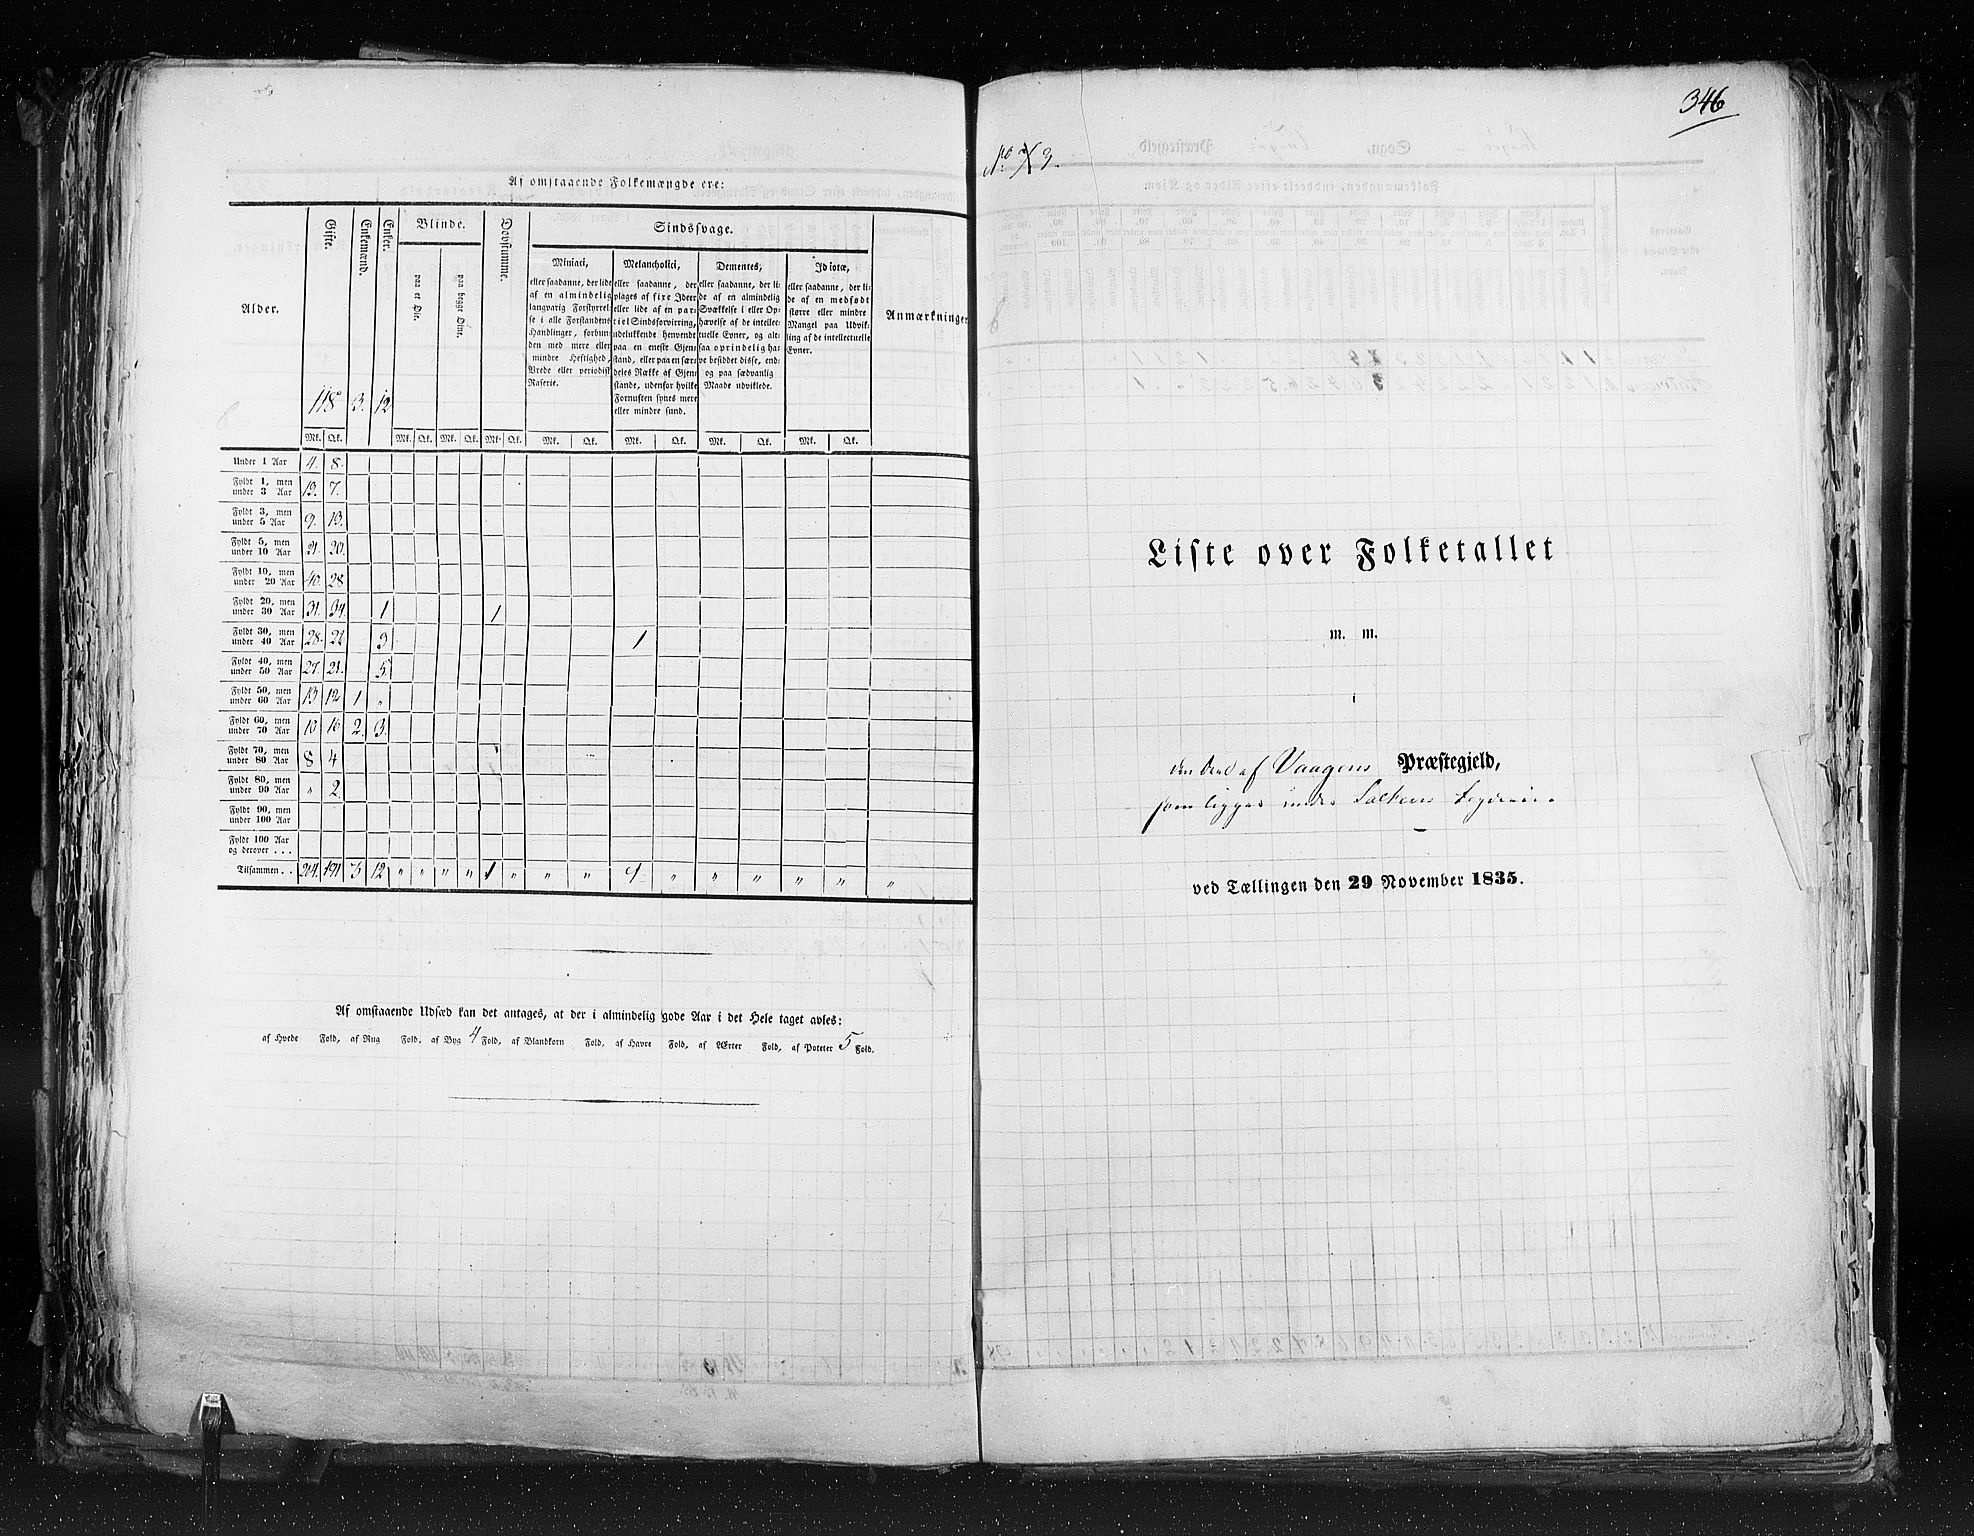 Af omstaaende Folkemængde ere:
Alder.
Gifte.
Enkemænd.
Enker.
Blinde.
paa et Øie.
paa begge Øine.
Døvstumme.
Sindssvage.
Miniaci,
eller saadanne, der lide
af en almindelig
langvarig Forstyrrel-
se i alle Forstandens
Handlinger, forbun-
den med mere eller
mindre Heftighed,
Vrede eller periodisk
Raserie.
Melancholici,
eller saadanne, der
plages af fixe Ideer
eller lide af en par-
tiel Sindsforvirring,
udelukkende henvendt
paa en eneste Gjen-
stand, eller paa en sær-
deles Række af Gjen-
stande, udenfor hvilke
Fornuften synes mere
eller mindre sund.
Dementes,
eller saadanne, der li-
de af en almindelig
Svækkelse i eller Op-
hævelse af de intellec-
tuelle Evner, og alt-
saa oprindelig ha-
ve besiddet disse, end-
og paa sædvanlig
Maade udviklede.
Idiotæ,
eller saadanne, der li-
de af en medfødt
større eller mindre
Mangel paa Udvik-
ling af de intellectuelle
Evner.
Anmærkninger
118 3. 12
Mk. Qk. Mk. Qk. Mk. Qk. Mk. Qk. Mk. Qk. Mk. Qk. Mk. Qk. Mk. Qk.
Under 1 Aar 4. 8.
Fyldt 1, men
under 3 Aar 13. 7.
Fyldt 3, men
under 5 Aar 9. 13.
Fyldt 5, men
under 10 Aar 21. 20.
Fyldt 10, men
under 20 Aar 40. 28
Fyldt 20, men
under 30 Aar 31. 34 1 1
Fyldt 30, men
under 40 Aar 28. 22 3 1
Fyldt 40, men
under 50 Aar 27. 21. 5
Fyldt 50, men
under 60 Aar 13 12 1 "
Fyldt 60, men
under 70 Aar 10 16 2. 3.
Fyldt 70, men
under 80 Aar 8 4
Fyldt 80, men
under 90 Aar " 2
Fyldt 90, men
under 100 Aar
Fyldt 100 Aar
og derover . . .
Tilsammen . . 204. 191 3 12 " " " " 1 " " " 1 " " " " " "
Af omstaaende Udsæd kan det antages, at der i almindelig gode Aar i det Hele taget avles:
af Hvede Fold, af Rug Fold, af Byg 4 Fold, af Blandkorn Fold, af Havre Fold, af Ærter Fold, af Poteter 5 Fold.
346
No 3.
Liste over Folketallet
m. m.
i
den Deel af Vaagens Præstegjeld,
som ligger under Saltens Fogderie.
ved Tællingen den 29 November 1835.